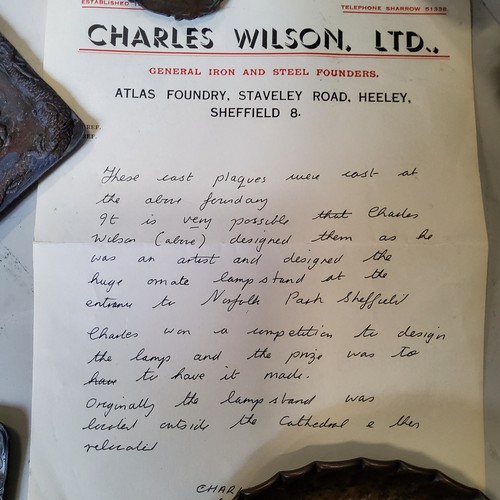 ESTABLISHED
TELEPHONE SHARROW 51338.
CHARLES WILSON, LTD.,
GENERAL IRON AND STEEL FOUNDERS.
ATLAS FOUNDRY, STAVELEY ROAD, HEELEY,
SHEFFIELD 8.
REF.
REF.
These cast plaques were cast at
the above foundary
It is very possible that Charles
Wilson (above) designed them as he
was an artist and designed the
huge ornate lampstand at the
entrance to Norfolk Park Sheffield
Charles won a competition to design
the lamp and the prize was to
have to have it made.
Originally the lampstand was
located outside the Cathedral & then
relocated